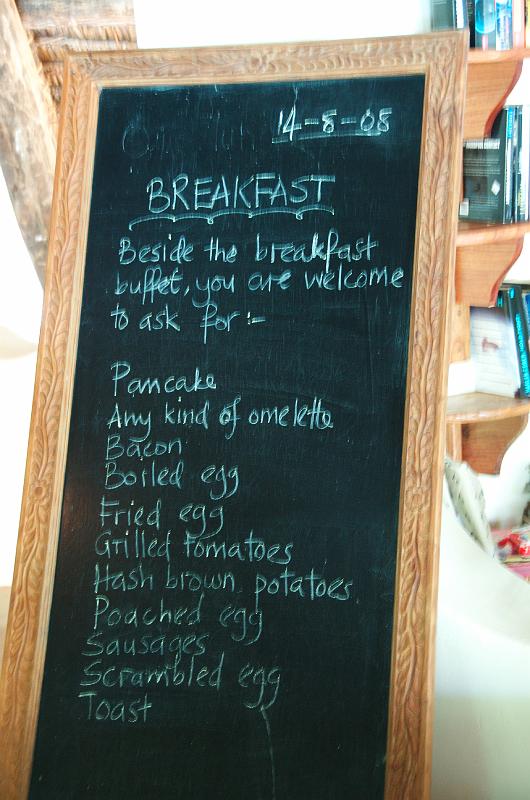 14-8-08
BREAKFAST
Beside the breakfast
buffet, you are welcome
to ask for :-
Pancake
Any kind of omelette
Bacon
Boiled egg
Fried egg
Grilled Tomatoes
Hash brown potatoes
Poached egg
Sausages
Scrambled egg
Toast